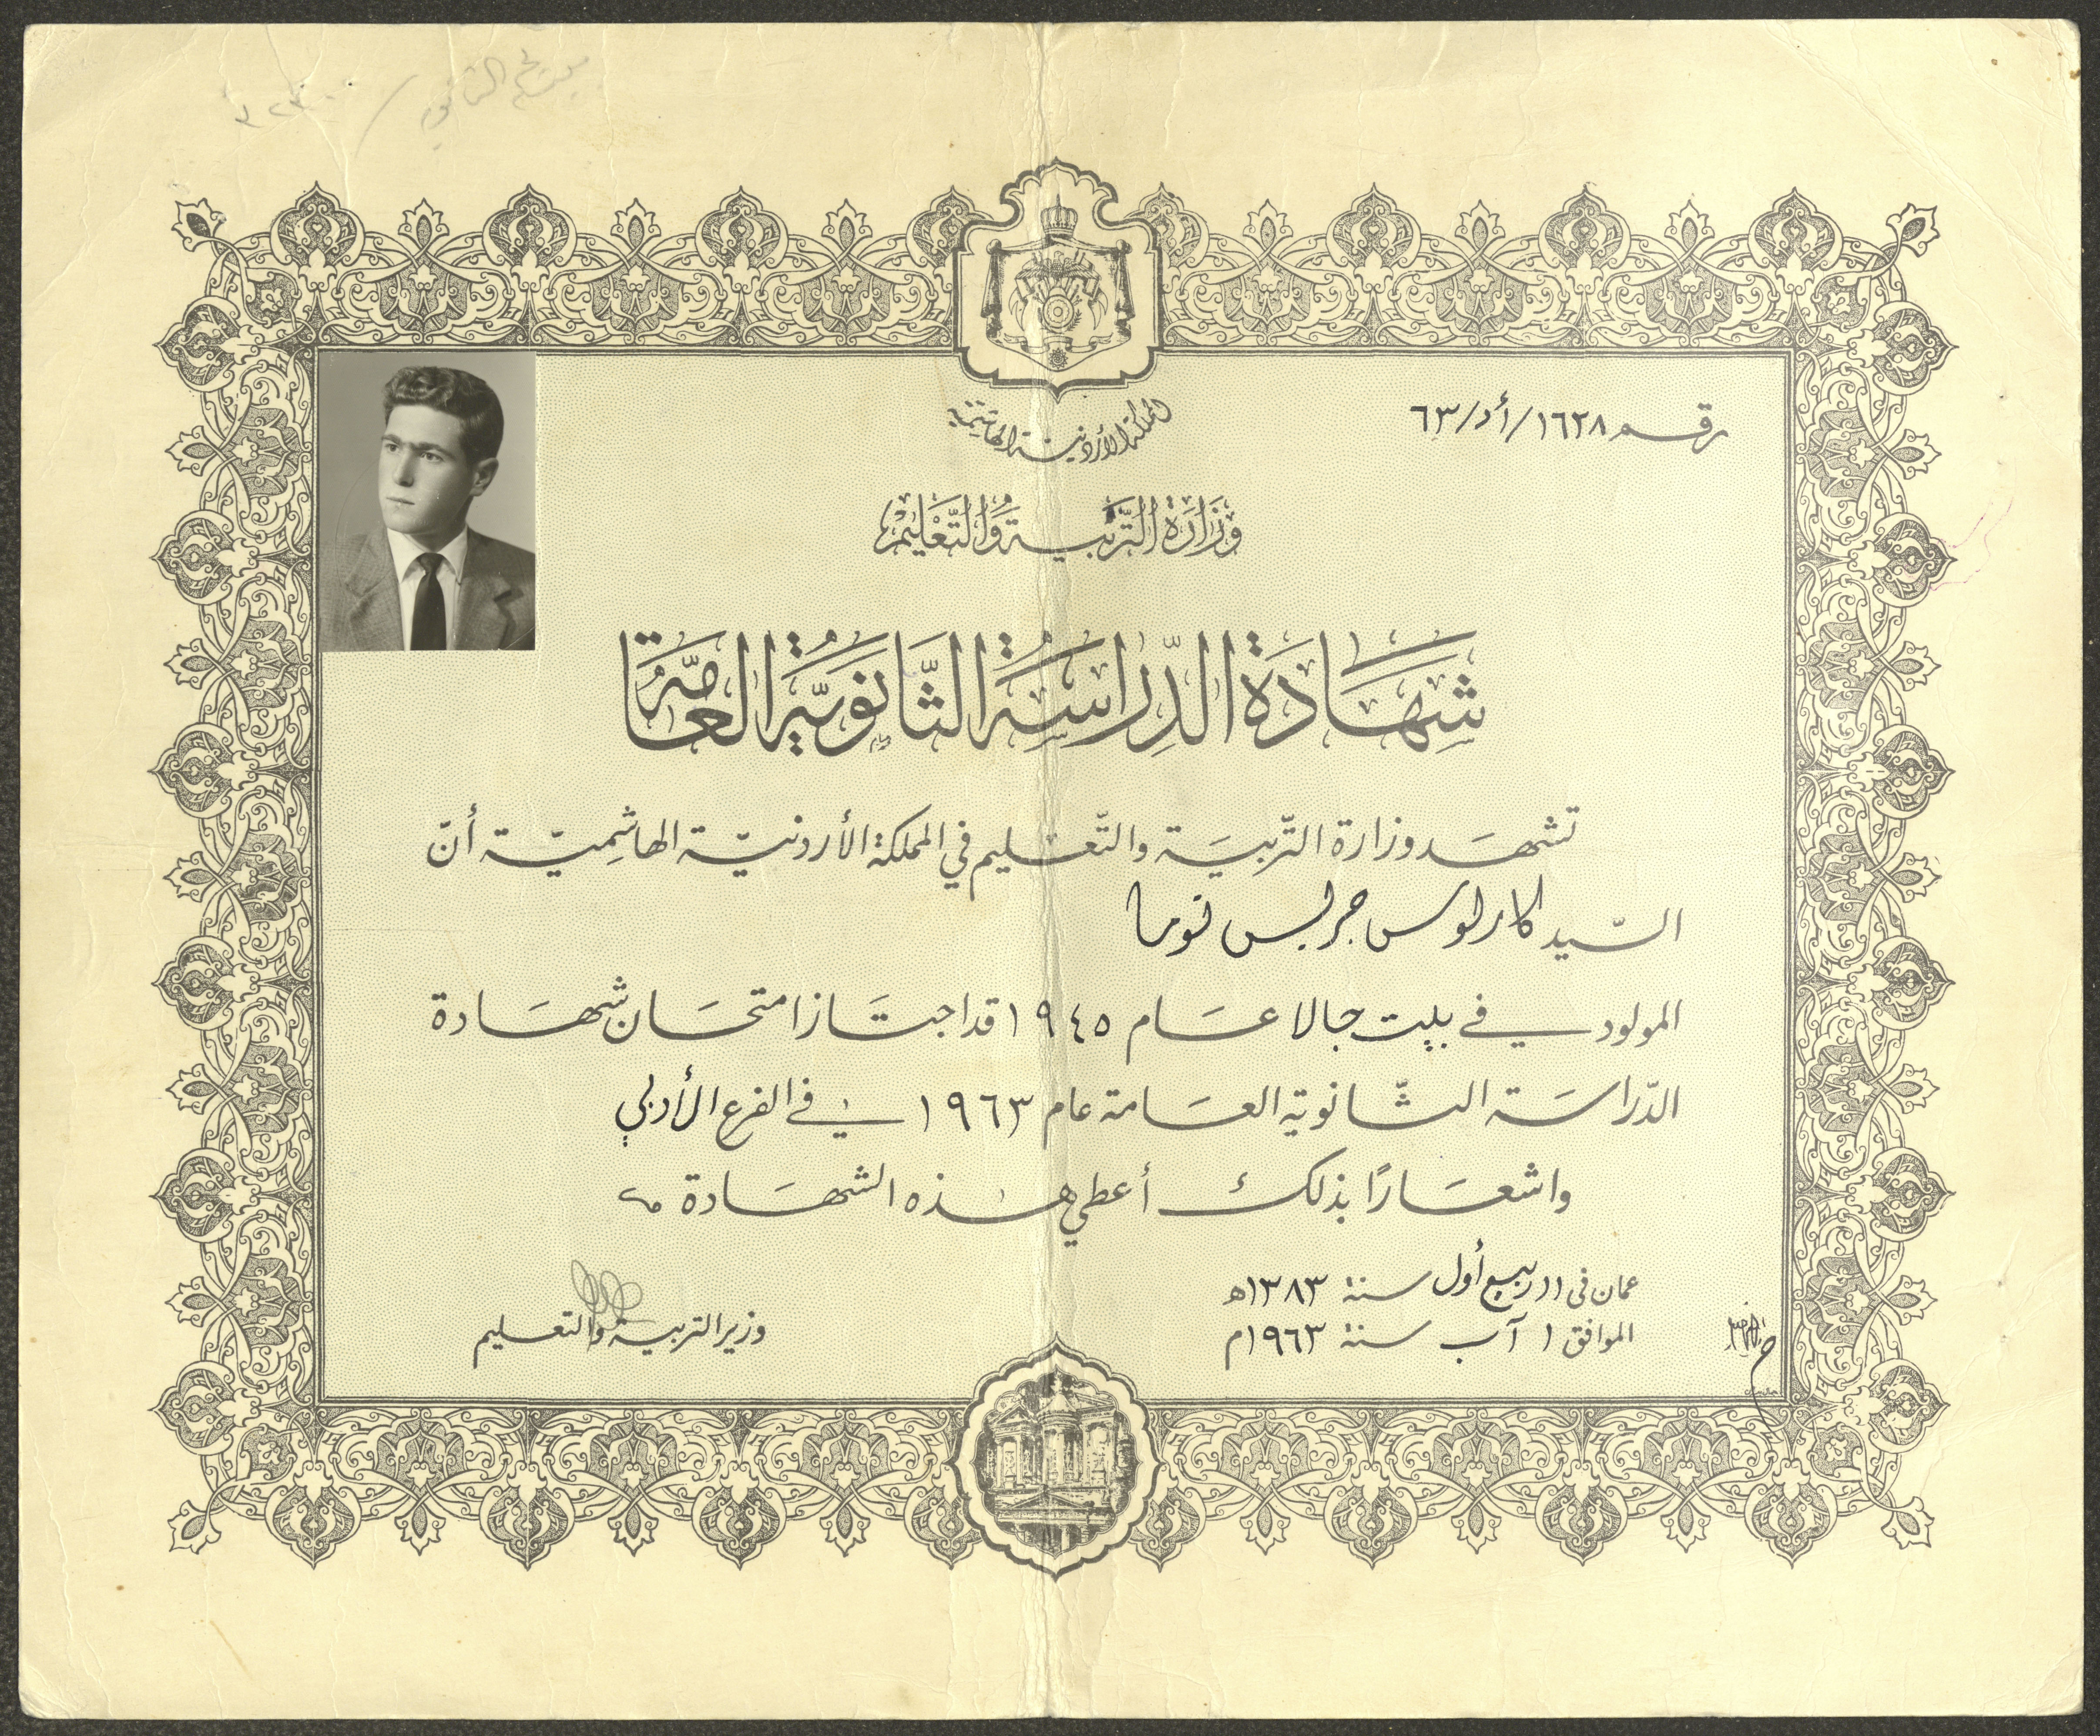 رقم ١٦٢٨/أد/٦٣
المملكة الأردنية الهاشمية
وَزَارَةُ التَّرْبِيَةِ وَالتَّعْلِيمْ
شَهَادَةُ الدِّرَاسَةِ الثَّانَوِيَّةِ العَامَّة
تشهَد وزارة التّربيَة والتّعليم في المملكة الأردنيّة الهاشِميّة أنّ
السّيد كارلوس جريس توما
المولود في بيت جالا عَام ١٩٤٥ قد اجتَاز امتحَان شهَادة
الدّراسَة الثّانوية العَامة عام ١٩٦٣ في الفرع الأدبي
واشعَارًا بذلك أعطي هذه الشهَادة
عمان في ١١ ربيع أول سنة ١٣٨٣ه
الموافق ١ آب سنة ١٩٦٣م
وزير التربية والتعليم